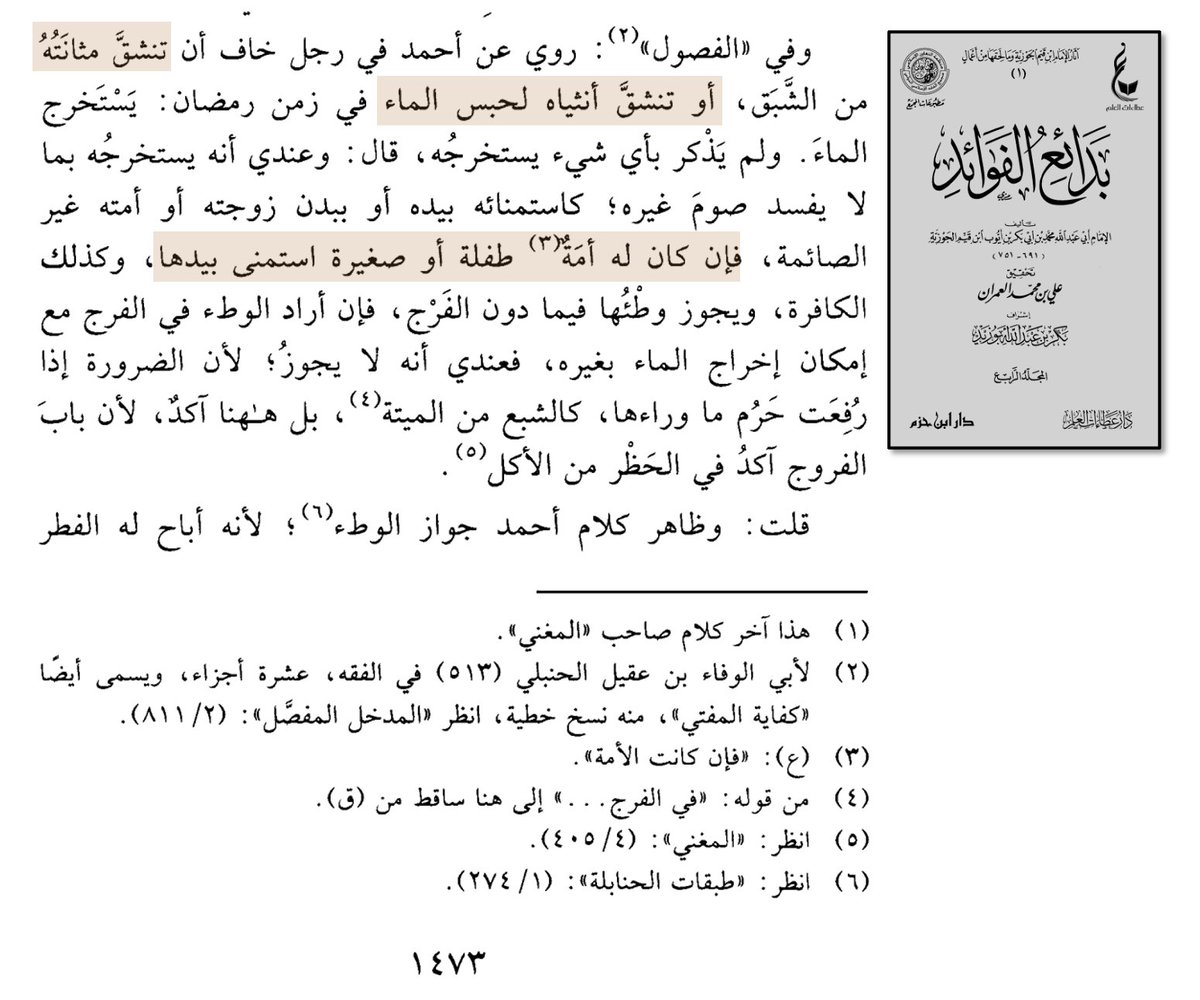 وفي «الفصول»(٢): روي عن أحمد في رجل خاف أن تنشقَّ مثانَتُهُ
من الشَّبَق، أو تنشقَّ أنثياه لحبس الماء في زمن رمضان: يَسْتَخرج
الماءَ. ولم يَذْكر بأي شيء يستخرجُه، قال: وعندي أنه يستخرجُه بما
لا يفسد صومَ غيره؛ كاستمنائه بيده أو ببدن زوجته أو أمته غير
الصائمة، فإن كان له أمَةٌ(٣) طفلة أو صغيرة استمنى بيدها، وكذلك
الكافرة، ويجوز وطْئُها فيما دون الفَرْج، فإن أراد الوطء في الفرج مع
إمكان إخراج الماء بغيره، فعندي أنه لا يجوزُ؛ لأن الضرورة إذا
رُفِعَت حَرُم ما وراءها، كالشبع من الميتة(٤)، بل هـٰهنا آكدٌ، لأن بابَ
الفروج آكدُ في الحَظْر من الأكل(٥).
قلت: وظاهر كلام أحمد جواز الوطء(٦)؛ لأنه أباح له الفطر
(١) هذا آخر كلام صاحب «المغني».
(٢) لأبي الوفاء بن عقيل الحنبلي (٥١٣) في الفقه، عشرة أجزاء، ويسمى أيضًا
«كفاية المفتي»، منه نسخ خطية، انظر «المدخل المفصَّل»: (٢/ ٨١١).
(٣) (ع): «فإن كانت الأمة».
(٤) من قوله: «في الفرج...» إلى هنا ساقط من (ق).
(٥) انظر: «المغني»: (٤/ ٤٠٥).
(٦) انظر: «طبقات الحنابلة»: (١/ ٢٧٤).
١٤٧٣
آثار الإمام ابن قيم الجوزية وما لحقها من أعمال
(١)
عطاءات العلم
مطبوعات المجمع
بَدَائِعُ الفَوَائِدِ
تأليف
الإمام أبي عبد الله محمد بن أبي بكر بن أيوب ابن قيم الجوزية
(٦٩١ - ٧٥١)
تحقيق
علي بن محمد العمران
إشراف
بكر بن عبد الله أبو زيد
المجلد الرابع
دار عطاءات العلم
دار ابن حزم